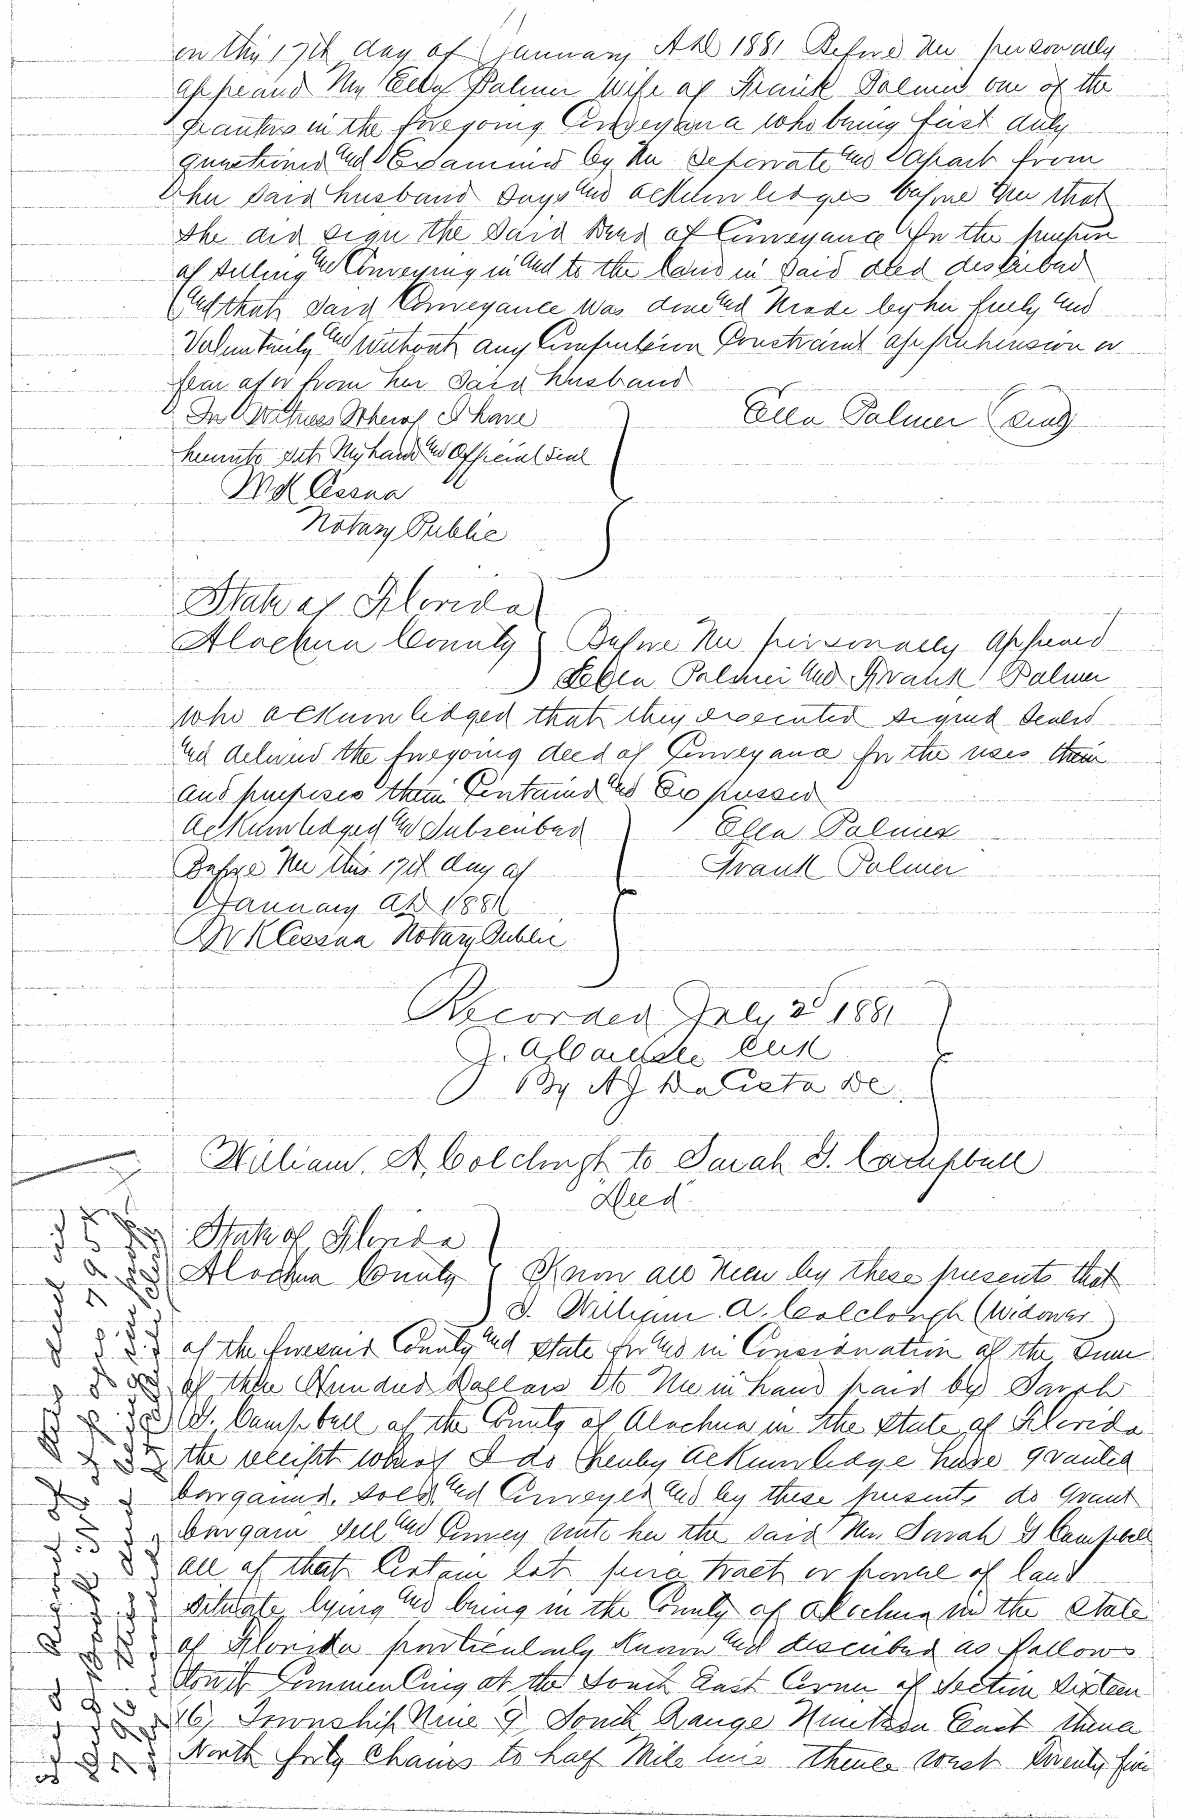 on this 17th day of January AD 1881 Before Me personally
appeared Mrs Ella Palmer Wife of Frank Palmer one of the
grantors in the foregoing Conveyance who being first duly
questioned and Examined by Me Seperate and apart from
her said husband says and acknowledges before Me that
she did sign the said Deed of Conveyance for the purpose
of selling and Conveying in and to the land in said deed described
and that said Conveyance was done and Made by her freely and
Voluntarily and without any Compulsion Constraint apprehension or
fear of or from her said husband
In Witness Whereof I have
hereunto set My hand and Official Seal
Ella Palmer (Seal)
W K Cessna
Notary Public
State of Florida
Alachua County
Before Me personally appeared
Ella Palmer and Frank Palmer
who acknowledged that they executed signed sealed
and delivered the foregoing deed of Conveyance for the uses
and purposes therein Contained and Expressed
Acknowledged and Subscribed
Ella Palmer
Before Me this 17th day of
Frank Palmer
January AD 1881
W K Cessna Notary Public
Recorded July 2d 1881
J. A. Carlisle Clerk
By A J DaCosta DC
William. A. Colclough to Sarah G. Campbell
"Deed"
State of Florida
Alachua County
Know all Men by these presents that
I. William A. Colclough (Widower)
of the foresaid County and State for and in Consideration of the Sum
of three Hundred Dollars to Me in hand paid by Sarah
G. Campbell of the County of Alachua in the State of Florida
the receipt whereof I do hereby acknowledge have granted
bargained, sold, and Conveyed and by these presents do grant
bargain sell and Convey unto her the said Mrs. Sarah G Campbell
all of that Certain lot piece tract or parcel of land
situate lying and being in the County of Alachua in the State
of Florida particularly known and described as follows
towit Commencing at the South East Corner of Section Sixteen
16, Township Nine 9 South Range Nineteen East thence
North forty Chains to half Mile line thence west Twenty five
See a Record of this deed in
Deed Book "N" at pages 795 &
796 this deed being improp-
erly indexed.